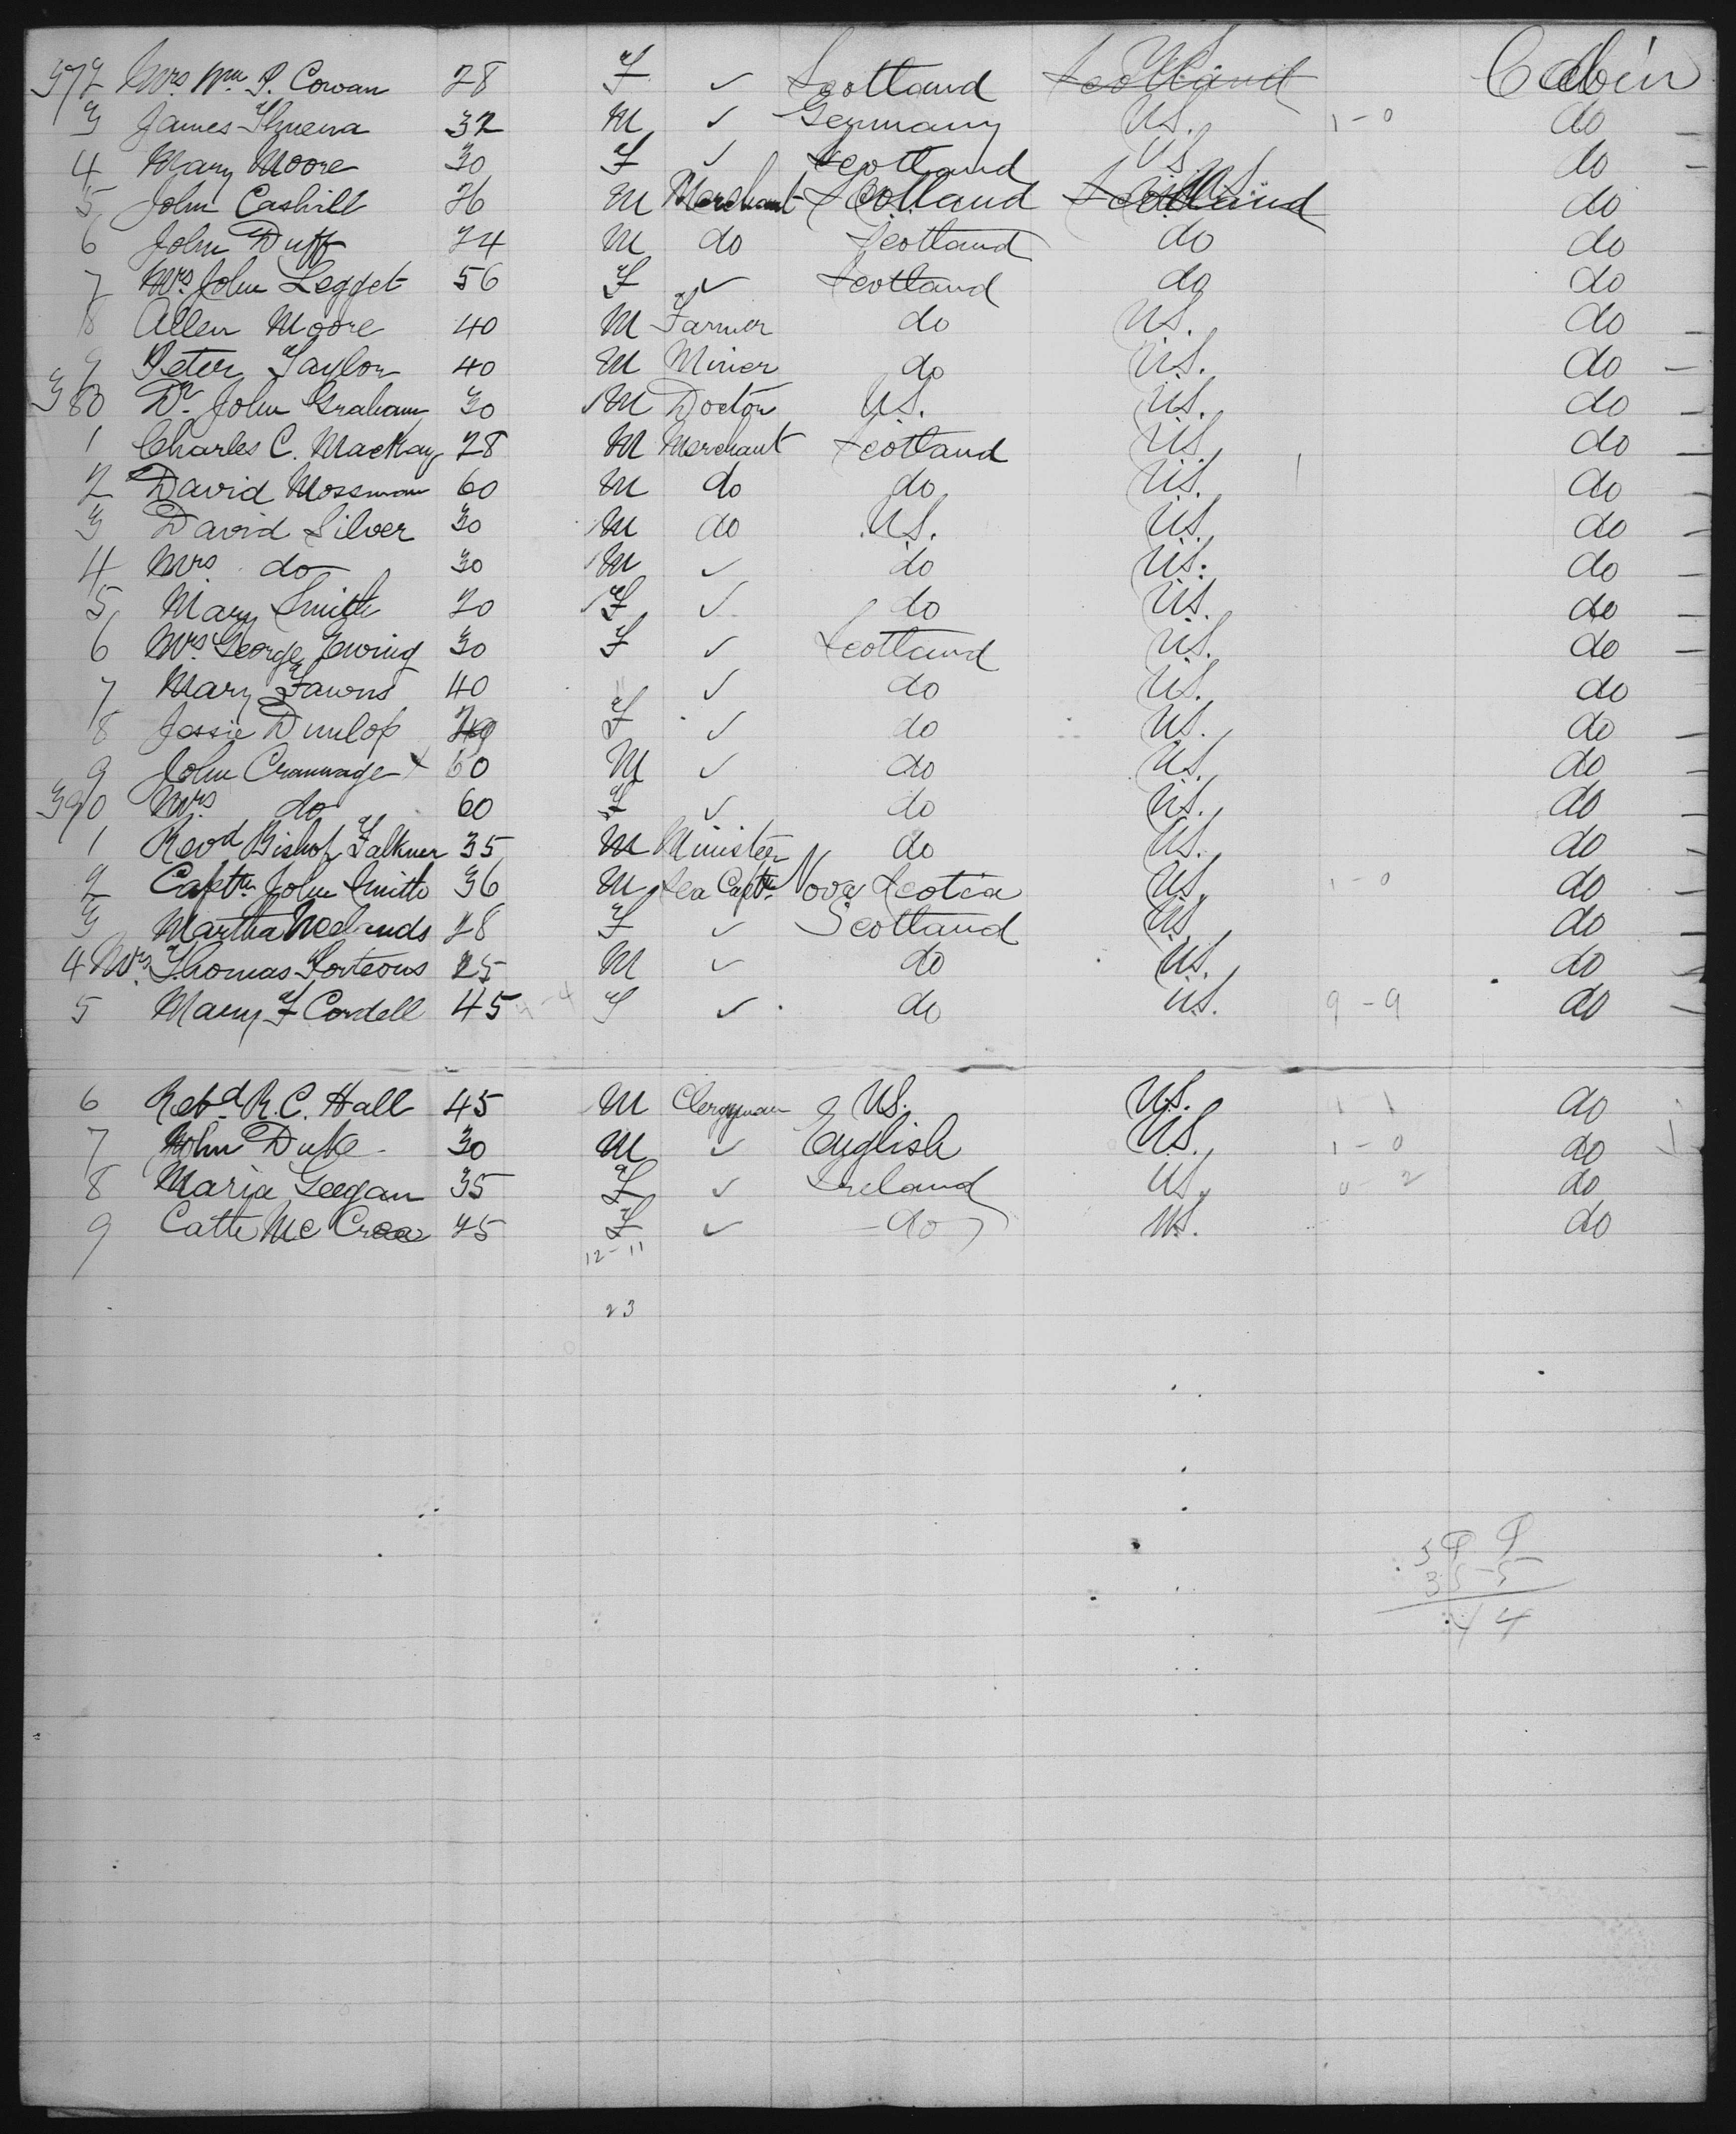 372 Mrs. Wm. P. Cowan 28 F ✓ Scotland U.S. Scotland Cabin
3 James 32 M ✓ Germany U.S. 1-0 do —
4 Mary Moore 30 F ✓ Scotland U.S. do —
5 John Cashill 26 M Merchant Scotland U.S. Scotland do
6 John Duff 24 M do Scotland do do
7 Mrs. John Legget 56 F ✓ Scotland do do
8 Allen Moore 40 M Farmer do U.S. do —
9 Peter Taylor 40 M Miner do U.S. do —
380 Dr. John Graham 30 M Doctor U.S. U.S. do —
1 Charles C. MacKay 28 M Merchant Scotland U.S. do —
2 David Mossman 60 M do do U.S. do —
3 David Silver 30 M do U.S. U.S. do —
4 Mrs. do 30 M ✓ do U.S. do —
5 Mary Smith 20 F ✓ do U.S. do —
6 Mrs. George Ewing 30 F ✓ Scotland U.S. do —
7 Mary Fawns 40 " ✓ do U.S. do
8 Jessie Dunlop F ✓ do U.S. do —
9 John Crannage x 60 M ✓ do U.S. do —
390 Mrs do 60 F ✓ do U.S. do —
1 Revd Bishop Falkner 35 M Minister do U.S. do —
2 Captn. John Smith 36 M Sea Captn. Nova Scotia U.S. 1-0 do —
3 Martha 28 F ✓ Scotland U.S. do —
4 Mrs. Thomas Porteous 25 M ✓ do U.S. do —
5 Mary F Cordell 45 F ✓ do U.S. 9-9 do —
6 Revd. R. C. Hall 45 M Clergyman U.S. U.S. 1 1 do
7 John Duke 30 M ✓ English U.S. 1-0 do
8 Maria Geegan 35 F ✓ Ireland U.S. 0-2 do
9 Cathe McCrea 25 F ✓ do U.S. do
12-11
23